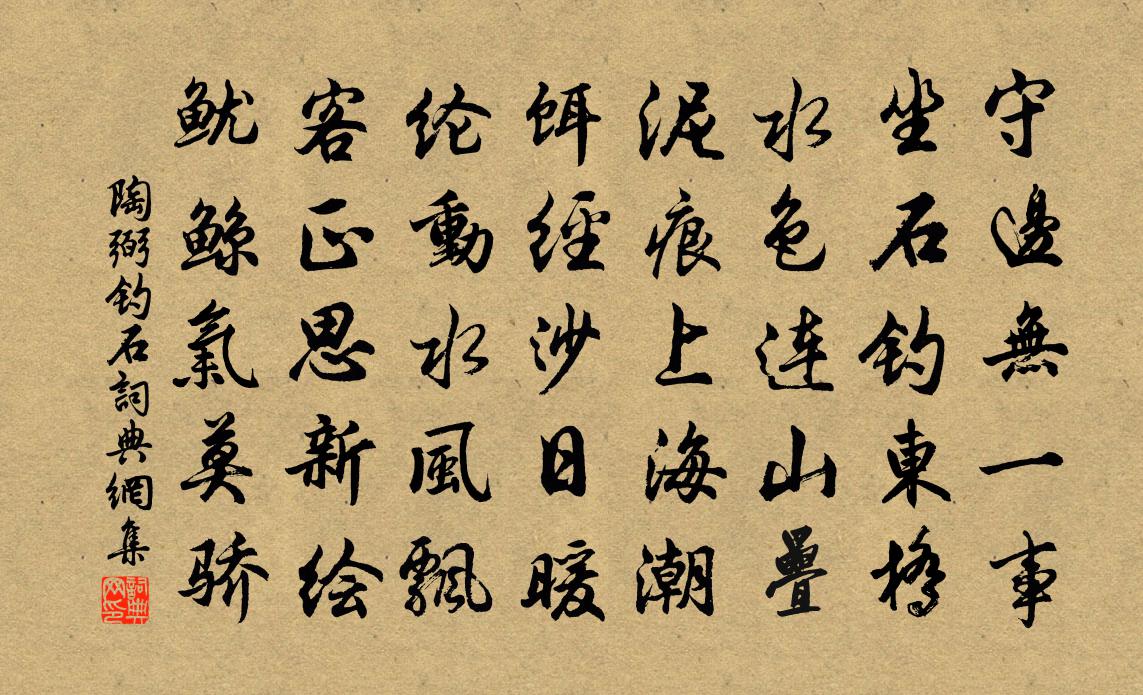 守邊無一事
坐石钓東橋
水色连山疊
泥痕上海潮
餌經沙日暖
纶動水風飄
客正思新绘
鱿鲸氣莫骄
陶弼钓石詞典網集